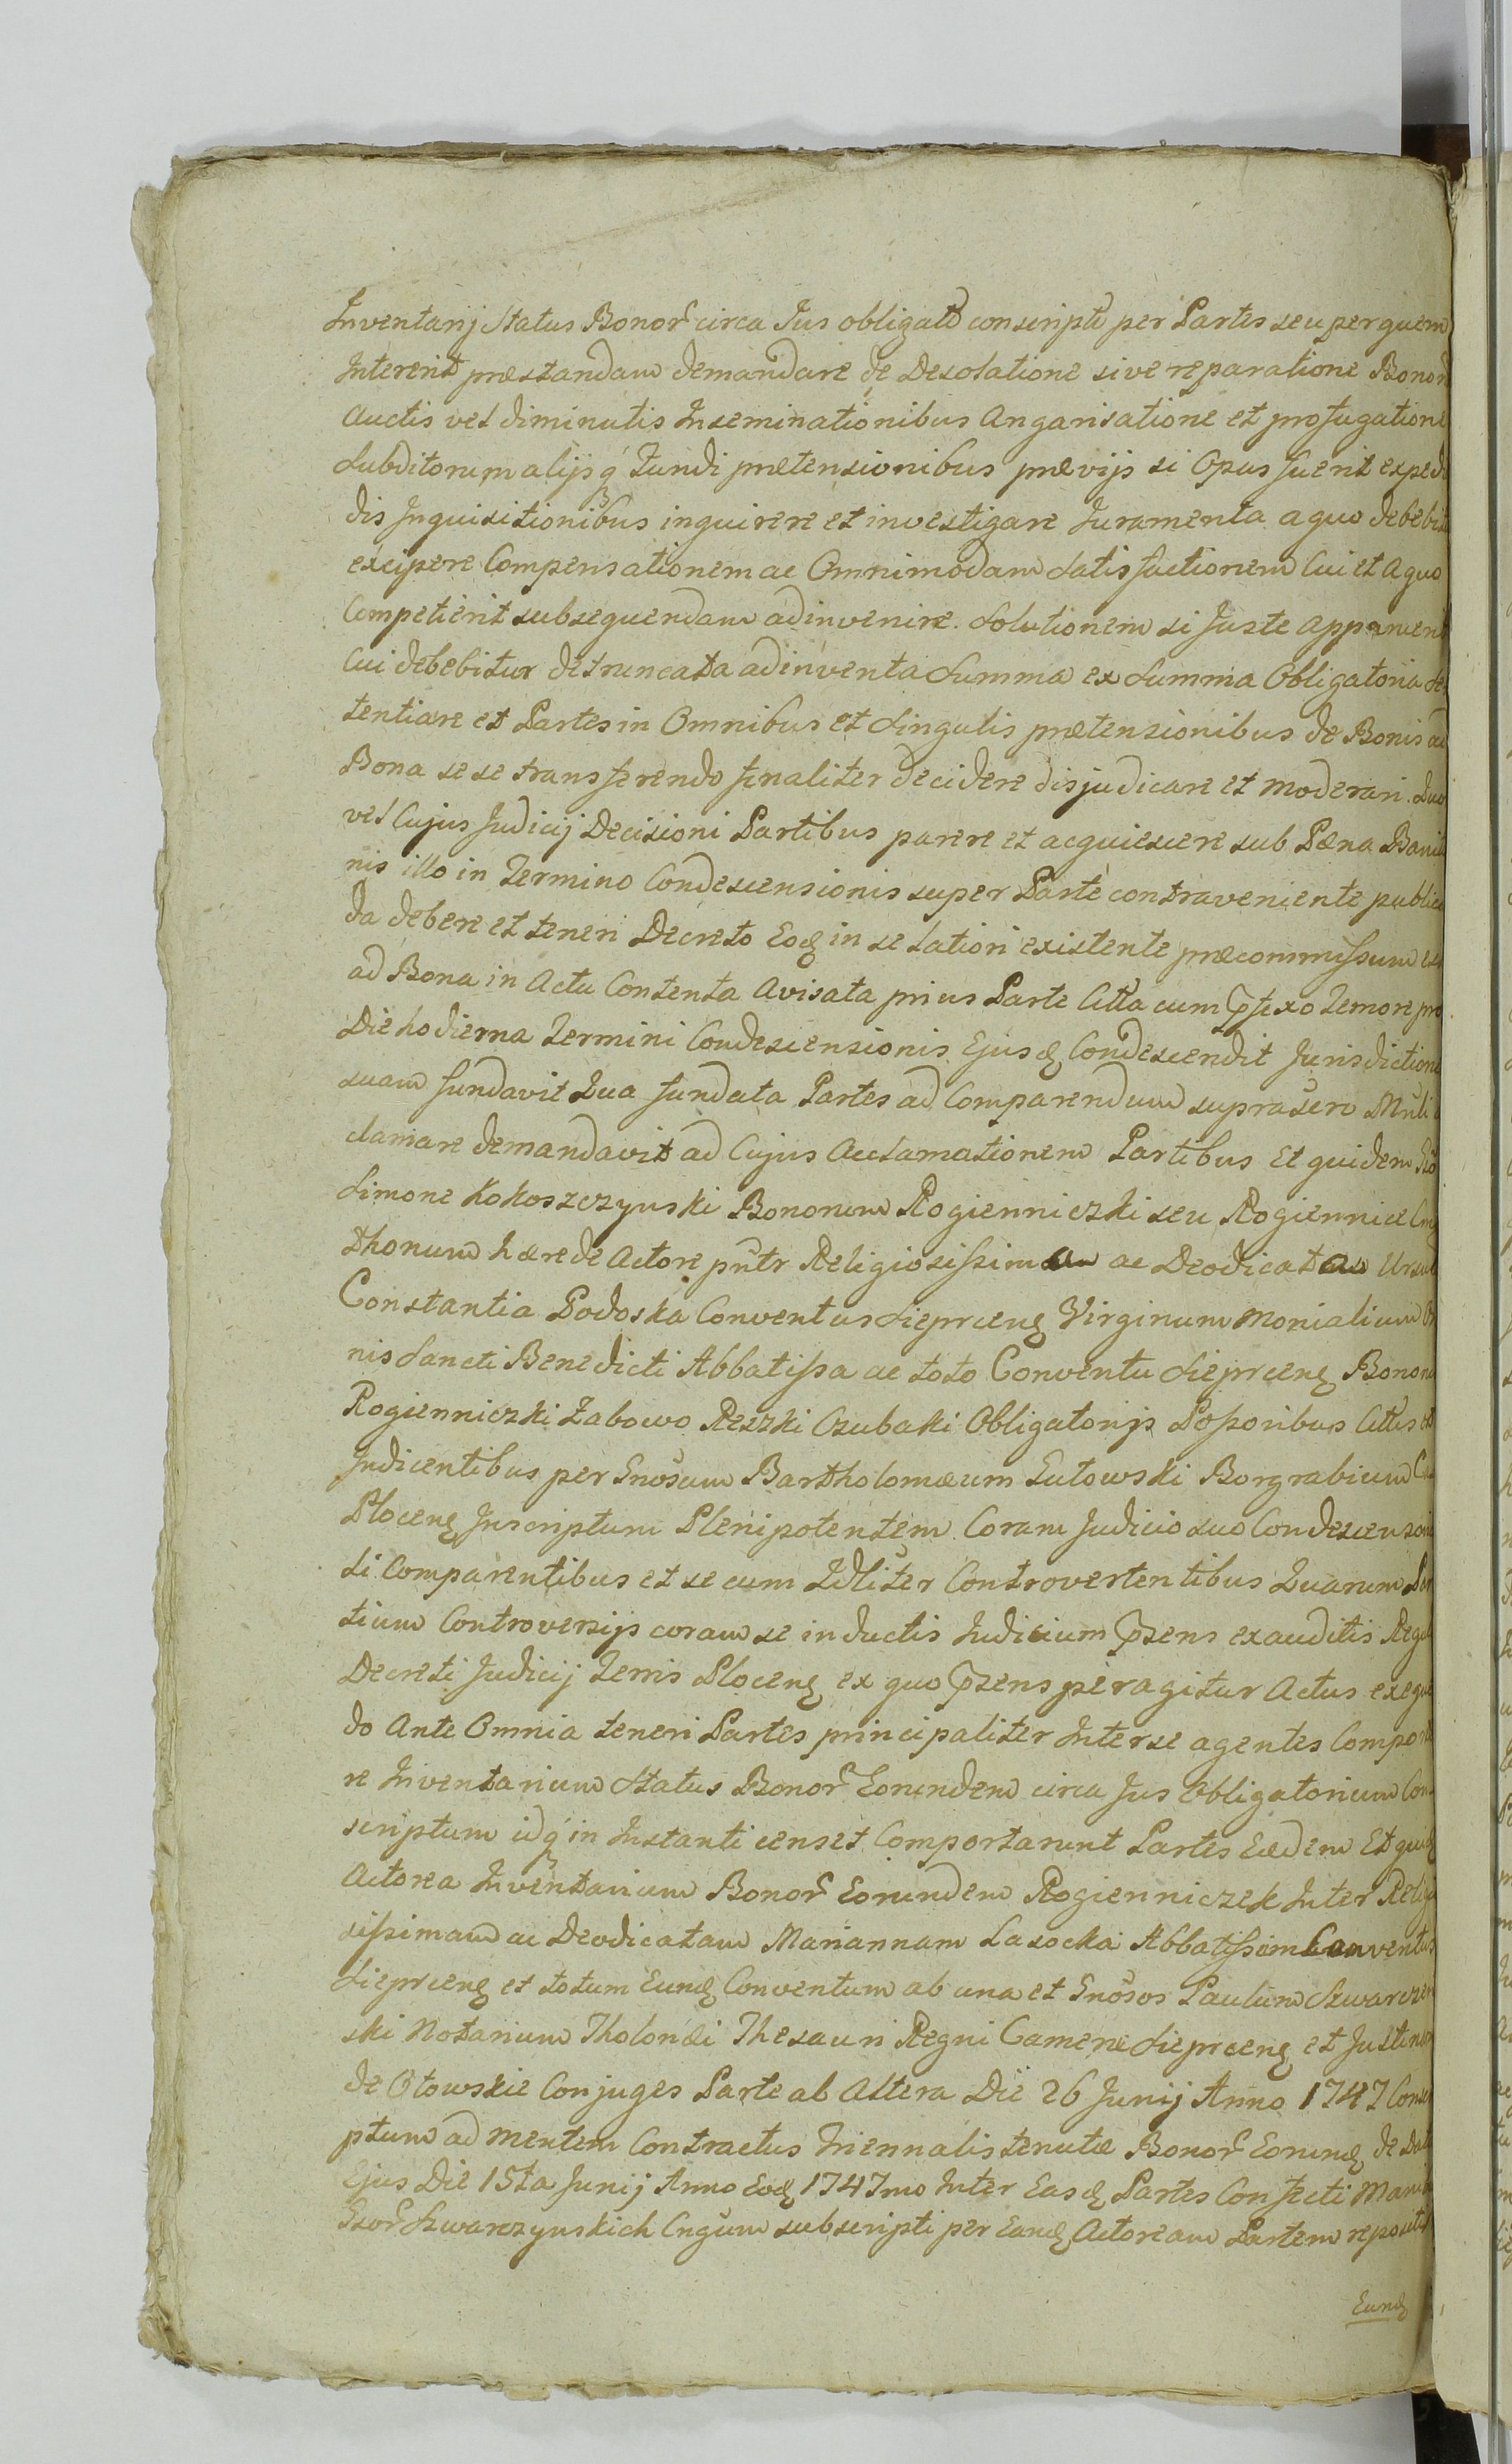 Inventarij Status Bonor circa Jus obligato conscripti per Partes seu per quem
Intererit præstandam demandare de Desolatione sive reparatione Bonor
auctis vel diminutis Inseminationibus Angarisatione et profugatione
Subditorum alijsq Fundi prætensionibus prævijs si Opus fuerit exped
dis Inquisitionibus inquirere et investigare Juramenta a quo debebit
excipere Compensationem ac Omnimodam Satisfactionem Cui et a quo
Competierit subsequendam adinvenire. Solutionem si Juste apparuerit
Cui debebitur detruncata adinventa Summa ex Summa Obligatoria Se
tentiare et Partes in Omnibus et Singulis prætensionibus de Bonis ad
Bona sese transferendo finaliter decidere disjudicare et moderari. Quo
vel Cujus Judicij Decisioni Partibus parere et acquiescere sub Pæna Banit
nis illo in Termino Condescensionis super Parte contraveniente public
da debere et teneri Decreto Eoq in se latiori existente præcommissum est
ad Bona in Actu Contenta Avisata prius Parte Citta cum pfixo Temore pro
Die hodierna Termini Condescensionis Ejusq Condescendit Jurisdictione
suam fundavit Qua fundata Partes ad Comparendum suprasero Mnli
clamare demandavit ad Cujus Acclamationem Partibus Et quidem
Simone Kokoszczynski Bonorum Rogienniczki seu Rogiennice
thonum hærede Actore pntr Religiosissimam ac Deodicatam Ursul
Constantia Podoska Conventus Sieprceng Virginum Monialium Or
nis Sancti Benedicti Abbatissa ac toto Conventu Sieprceng Bonor
Rogienniczki Zabowo Reszki Czubaki Obligatorijs Possoribus Cittis et
Judicentibus per Gnosum Bartholomæum Gutowski Borgrabium
Ploceng Inscriptum Plenipotentem Coram Judicio suo Condescensori
li Comparentibus et secum Idliter Controvertentibus Quarum Par
tium Controversijs coram se inductis Judicium psens exauditis Regul
Decreti Judicij Terris Ploceng ex quo psens peragitur Actus exequ
do Ante Omnia teneri Partes principaliter Inter se agentes Comport
re Inventarium Status Bonor Eorundem circa Jus Obligatorium Con
scriptum idq in Instanti censet Comportarunt Partes Eædem Et quid
Actorea Inventarium Bonor Eorundem Rogienniczek Inter Religi
sissimam ac Deodicatam Mariannam Lasocka Abbatissam Conventus
Sieprceng et totum Eundq Conventum ab una et Gnosos Paulum Szwarczyn
ski Notarium Tholonei Thesauri Regni Cameræ Sieprceng et Justinam
de Otowskie Conjuges Parte ab Altera Die 26 Junij Anno 1747 Conscri
ptum ad mentem Contractus Triennalis tenutæ Bonor Eorundq de Data
Ejus Die 15ta Junij Anno Eodq 1747mo Inter Easdq Partes Confecti Manib
Gsor Szwarczynskich Cngum subscripti per Eandq Actoream Partem reposit
Eundq